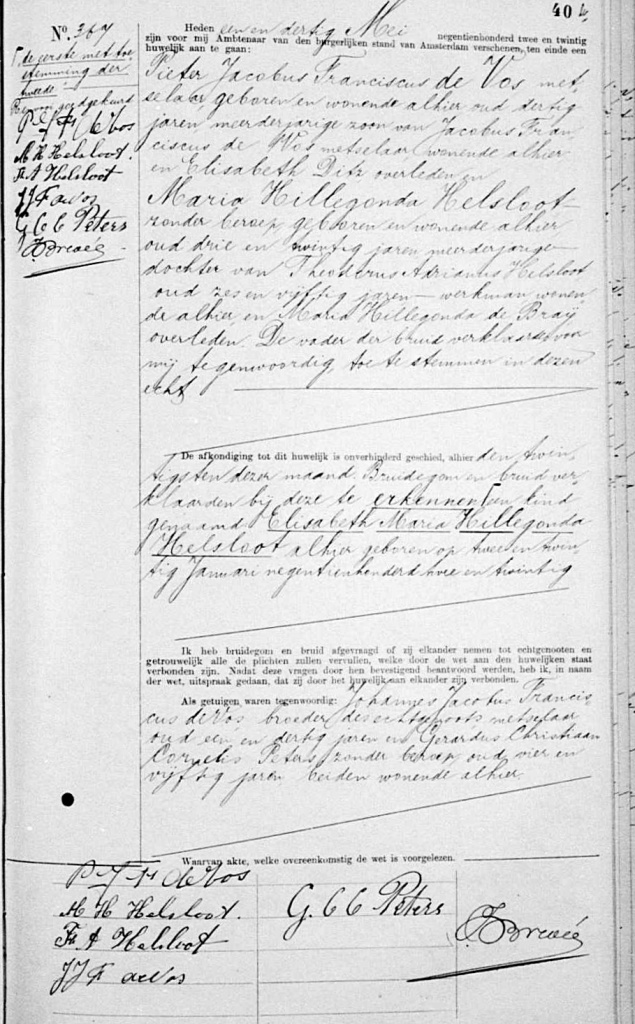 40 b
N°. 367
Heden een en dertig Mei negentienhonderd twee en twintig
zijn voor mij Ambtenaar van den burgerlijken stand van Amsterdam verschenen, ten einde een
huwelijk aan te gaan:
Pieter Jacobus Franciscus de Vos met-
selaar geboren en wonende alhier oud dertig
jaren meerderjarige zoon van Jacobus Fran-
ciscus de Vos metselaar wonende alhier
en Elisabeth Ditz overleden en
Maria Hillegonda Helsloot
zonder beroep geboren en wonende alhier
oud drie en twintig jaren meerderjarige
dochter van Theodorus Adrianus Helsloot
oud zes en vijftig jaren werkman wonen
de alhier en Maria Hillegonda de Braij
overleden. De vader der bruid verklaarde voor
mij tegenwoordig, toe te stemmen in dezen
echt
de eerste met toe
stemming der
tweede.
goedgekeurd
P J F de Vos
M H Helsloot.
Th A Helsloot
J J F de Vos
G C C Peters
De afkondiging tot dit huwelijk is onverhinderd geschied, alhier den twin
tigsten dezer maand. Bruidegom en bruid ver
klaarden bij deze te erkennen een kind
genaamd Elisabeth Maria Hillegonda
Helsloot alhier geboren op twee en twin
tig Januari negentienhonderd twee en twintig
Ik heb bruidegom en bruid afgevraagd of zij elkander nemen tot echtgenooten en
getrouwelijk alle de plichten zullen vervullen, welke door de wet aan den huwelijken staat
verbonden zijn. Nadat deze vragen door hen bevestigend beantwoord werden, heb ik, in naam
der wet, uitspraak gedaan, dat zij door het huwelijk aan elkander zijn verbonden.
Als getuigen waren tegenwoordig: Johannes Jacobus Francis
cus de Vos broeder des echtgenoots metselaar
oud een en dertig jaren en Gerardus Christiaan
Cornelis Peters zonder beroep oud vier en
vijftig jaren beiden wonende alhier.
Waarvan akte, welke overeenkomstig de wet is voorgelezen.
P J F de Vos
M H Helsloot.
Th A Helsloot
J J F de Vos
G. C C Peters